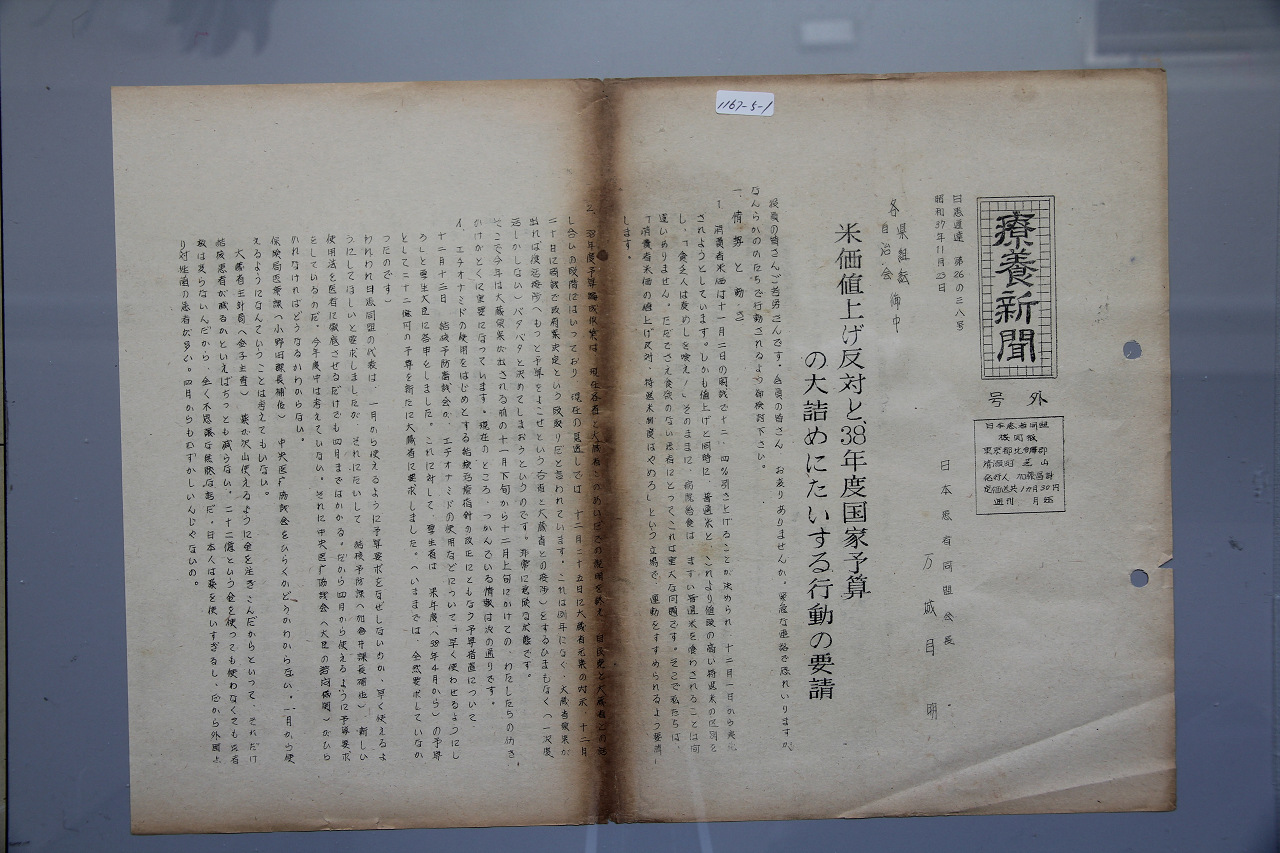 1167-5-1
療養新聞
号外
日本患者同盟
機関紙
東京都北多摩郡
清瀬町 芝山
発行人 加藤昌計
定価送共1カ月30円
週刊 月
日患通達 第26の三八号
昭和37年11月23日
各 県組織 自治会 御中
日本患者同盟会長
万城目 明
米価値上げ反対と、38年度国家予算
の大詰めにたいする行動の要請
役員の皆さんご苦労さんです。会員の皆さん お変りありませんか。緊急な連絡で恐れいりますが、
なんらかのかたちで行動されるよう御検討下さい。
一、情勢と動き
1. 消費者米価は十一月二日の閣議で十二、四%引き上げることが決められ、十二月一日から実施
されようとしています。しかも値上げと同時に、普通米と、これより値段の高い特選米の区別を
し、「貧乏人は麦めしを喰え!」そのままに、病院給食は、まずい普通米を喰わされることは間
違いありません。ただでさえ食欲のない患者にとってこれは重大な問題です。そこで私たちは、
「消費者米価の値上げ反対、特選米制度はやめろ」という立場で、運動をすすめられるよう要請
します。
2. 38年度予算編成作業は、現在各省と大蔵省
し合いの段階にはいっており、現在の見通しでは、十二月二十五日に大蔵省元案の内示、十二月
二十日に閣議で政府案決定という段取りだと言われています。これは例年になく、大蔵省原案が
出れば復活接渉(もっと予算をよこせという各省と大蔵省との接渉)をするひまもなく(一次復
活しかしない)バタバタと決めてしまおうというのです。非常に危険な状態です。
そこで今年は大蔵原案が出される前の十一月下旬から十二月上旬にかけての、わたしたちの動き
かけがとくに重要になっています。現在のところ、つかんでいる情報は次の通りです。
イ、エチオナミドの使用をはじめとする結核治療指針の改正にともなう予算措置について、
十二月十三日 結核予防審議会が、エチオナミドの使用などについて「早く使わせるようにし
ろ」と厚生大臣に答申をしました。これに対して、厚生省は、来年度(38年4月から)の予算
として二十二億円の予算を新たに大蔵省に要求しました。(いままでは、全然要求していなか
ったのです)
われわれ日患同盟の代表は、一月から使えるように予算要求をなぜしないのか、早く使えるよ
うにしてほしいと要求しましたが、それにたいして 結核予防課(加倉井課長補佐) 新しい
使用法を医者に徹底させるだけでも四月まではかかる。だから四月から使えるように予算要求
をしているのだ。今年度中は考えていない。それに中央医療協議会(大臣の諮問機関)がひら
かれなければどうなるかわからない。
保険局医療課(小野田課長補佐) 中央医療協議会をひらくかどうかわからない。一月から使
えるようになんていうことは考えてもいない。
大蔵省主計局(金子主査) 薬が沢山使えるように金を注ぎこんだからといって、それだけ
結核患者が減るかといえばちっとも減らない。二十二億という金を使っても使わなくても患者
数は変らないんだから、全く不思議な
り対处菌の患者が多い。四月からもむずかしいんじゃないの。